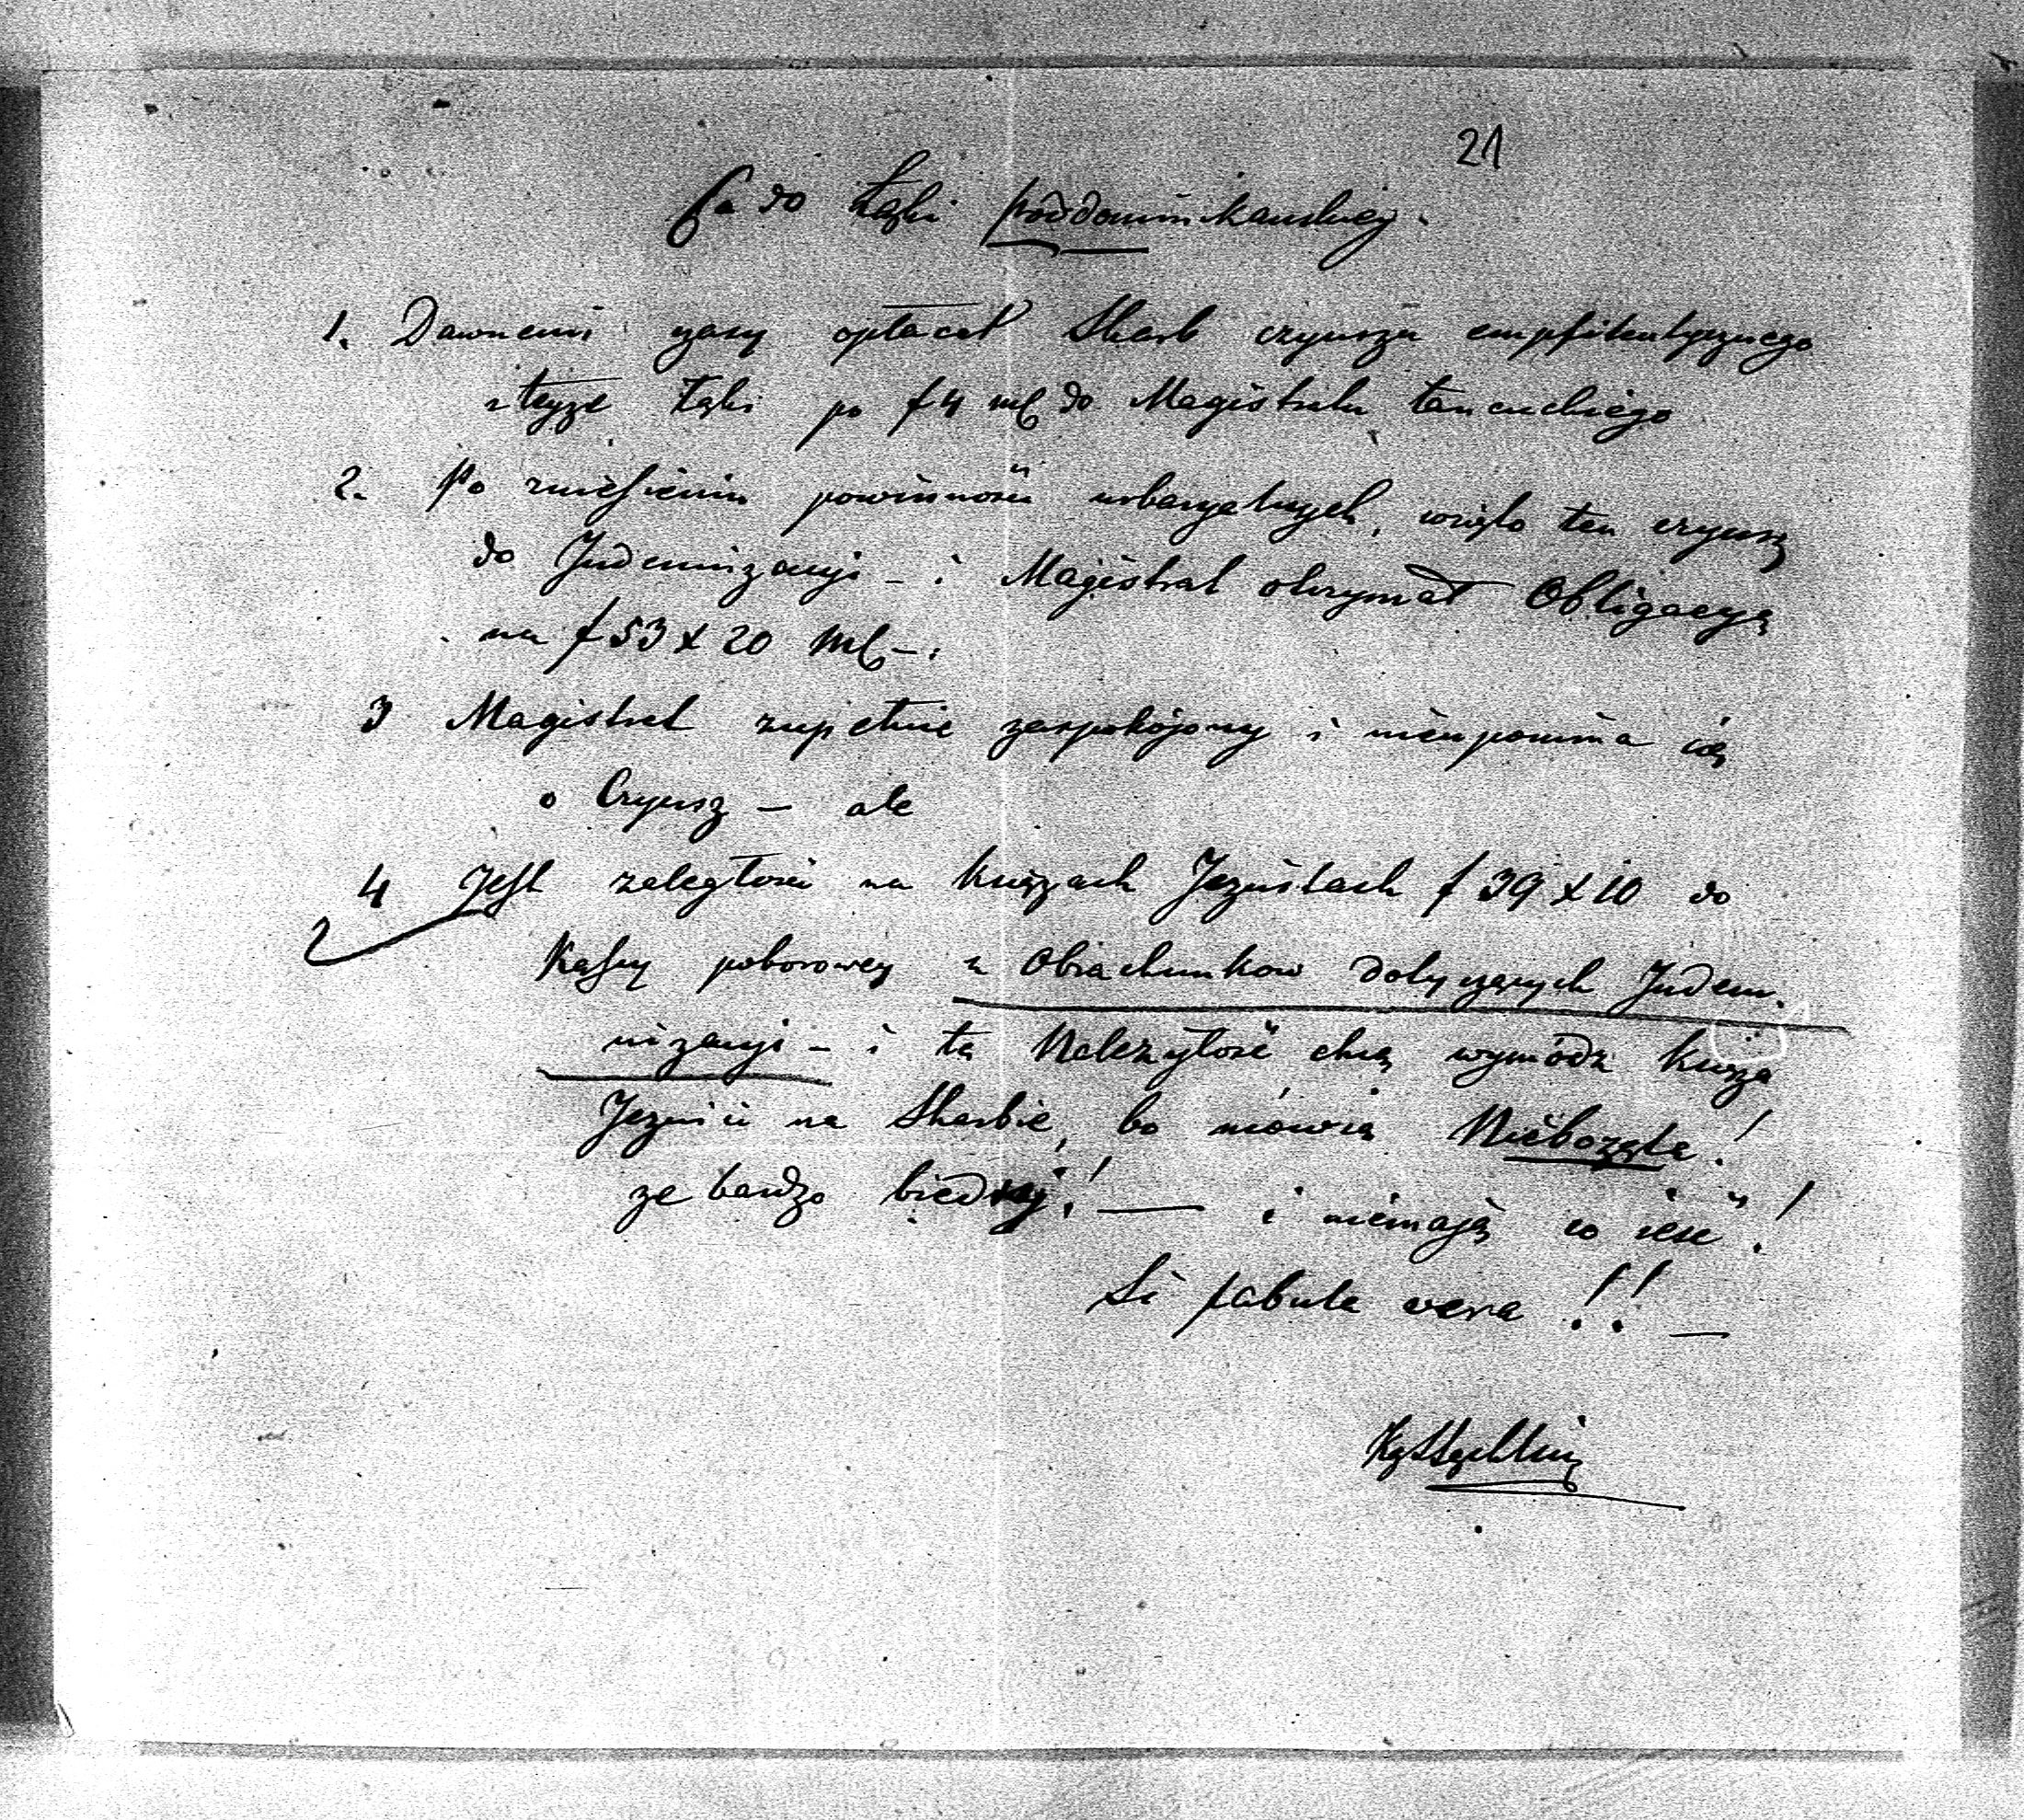 21
Co do Łąki poddominikańskiej.
1. Dawnemi czasy opłacał Skarb czynszu empfiteutycznego
z teyże Łąki po f 4 mk do Magistratu łancuckiego
2. Po zniesieniu powinności urbaryalnych, wzięto ten czynsz
do Indemnizacyi – i Magistrat otrzymał Obligacyą
na f 53 x 20 mk –.
3 Magistrat zupełnie zaspokojony i nieupomina się
o Czynsz – ale
4 Jest zaległości na księżach Jezuitach f 39 x 10 do
Kassy poborowey z Obrachunkow dotyczących Indem-
nizacyi – i tą Należytość chcą wymódz księża
Jezuici na Skarbie, bo mówią Niebożęta!
że bardzo biedni! — i niemają co ieść!
Si fabula vera!! —